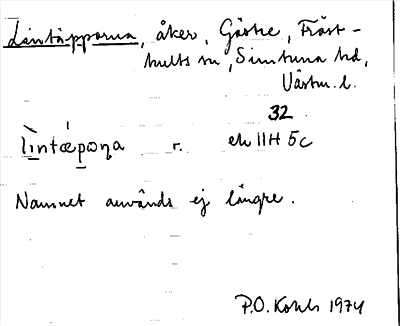 Lintäpporna, åker, Gästre, Fröst-
hults sn, Simtuna hd,
Västm. l.
32
lìntǽpoṇa r. ek 11H 5c
Namnet används ej längre.
P.O. Kohls 1974